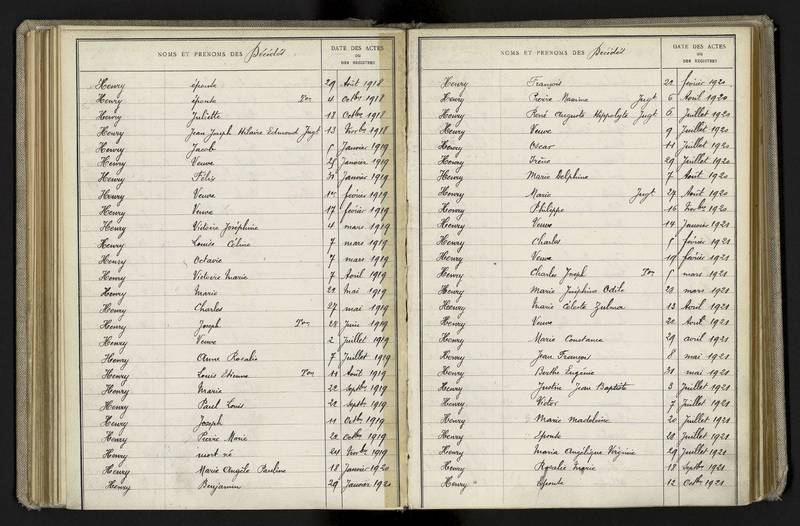 NOMS ET PRENOMS DES Décédés
DATE DES ACTES
OU
DES REGISTRES
Henry épouse 29 Août 1918
Henry épouse Ton 4 Octbre 1918
Henry Juliette 13 Octbre 1918
Henry Jean Joseph Hilaire Edmond Jugt 13 Novbre 1918
Henry Jacob 5 Janvier 1919
Henry Veuve 25 Janvier 1919
Henry Félix 31 Janvier 1919
Henry Veuve février 1919
Henry Veuve 17 février 1919
Henry Victoire Joséphine 4 mars 1919
Henry Louise Céline 7 mars 1919
Henry Octavie 7 mars 1919
Henry Victoire Marie 7 Avril 1919
Henry Marie Mai 1919
Henry Charles 27 mai 1919
Henry Joseph Ton 28 Juin 1919
Henry Veuve 2 Juillet 1919
Henry Anne Rosalie 7 Juillet 1919
Henry Louis Etienne Ton 11 Août 1919
Henry Marie 22 Septbre 1919
Henry Paul Louis 22 Septbre 1919
Henry Joseph 11 Octbre 1919
Henry Pierre Marie 20 Octbre 1919
Henry mort né 24 Novbre 1919
Henry Marie Angèle Pauline 18 Janvier 1920
Henry Benjamin 29 Janvier 1920
NOMS ET PRENOMS DES Décédés
DATE DES ACTES
OU
DES REGISTRES
Henry François février 1920
Henry Maxime Jugt 6 Avril 1920
Henry René Auguste Hippolyte Jugt 6 Juillet 1920
Henry Veuve 9 Juillet 1920
Henry Oscar 11 Juillet 1920
Henry Irène 29 Juillet 1920
Henry Marie Delphine 7 Août 1920
Henry Marie Jugt 27 Août 1920
Henry Philippe 16 Novbre 1920
Henry Veuve 14 Janvier 1921
Henry Charles 5 février 1921
Henry Veuve 19 février 1921
Henry Charles Joseph Ton 5 mars 1921
Henry Marie Joséphine Odile 28 mars 1921
Henry Marie Céleste Zulma 13 Avril 1921
Henry Veuve 20 Avril 1921
Henry Marie Constance 29 avril 1921
Henry Jean François 8 mai 1921
Henry Berthe Eugénie 31 mai 1921
Henry Justin Jean Baptiste 3 Juillet 1921
Henry Victor 7 Juillet 1921
Henry Marie Madeleine 20 Juillet 1921
Henry Epouse 28 Juillet 1921
Henry Maria Angélique Virginie 29 Juillet 1921
Henry Rosalie Marie 18 Septbre 1921
Henry Epouse 12 Octbre 1921